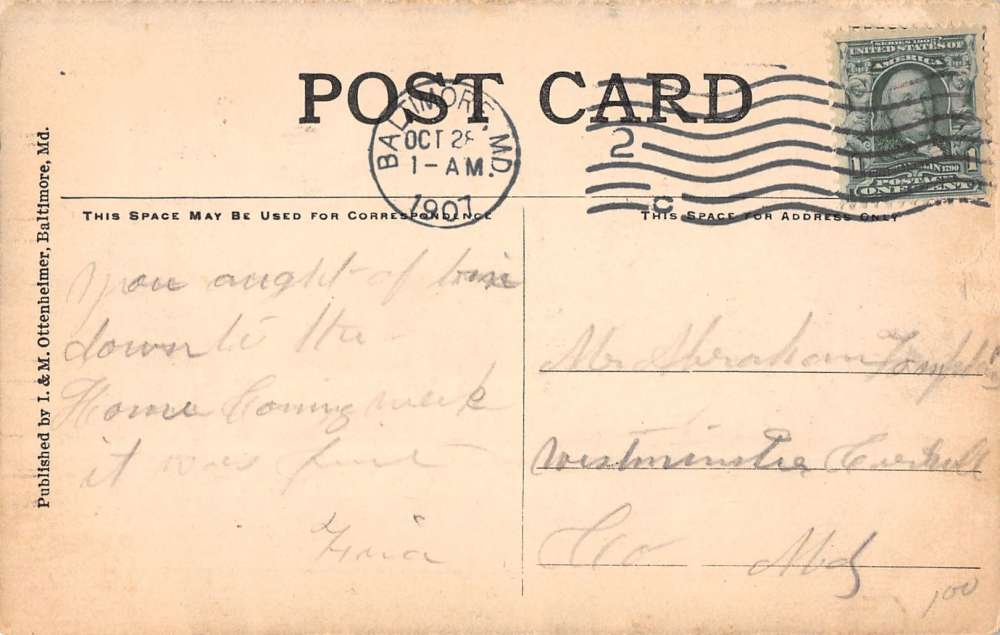 POST CARD
BALTIMORE, MD.
OCT 28
1-AM.
1907
2
C
SERIES 1902
UNITED STATES OF
AMERICA
1 1
POSTAGE
ONE CENT
THIS SPACE MAY BE USED FOR CORRESPONDENCE
THIS SPACE FOR ADDRESS ONLY
Published by I. & M. Ottenheimer, Baltimore, Md.
you aught of bin
down to the
Home Coming week
it was fine
Mr Abraham
Westminster Carroll
Co Md
100